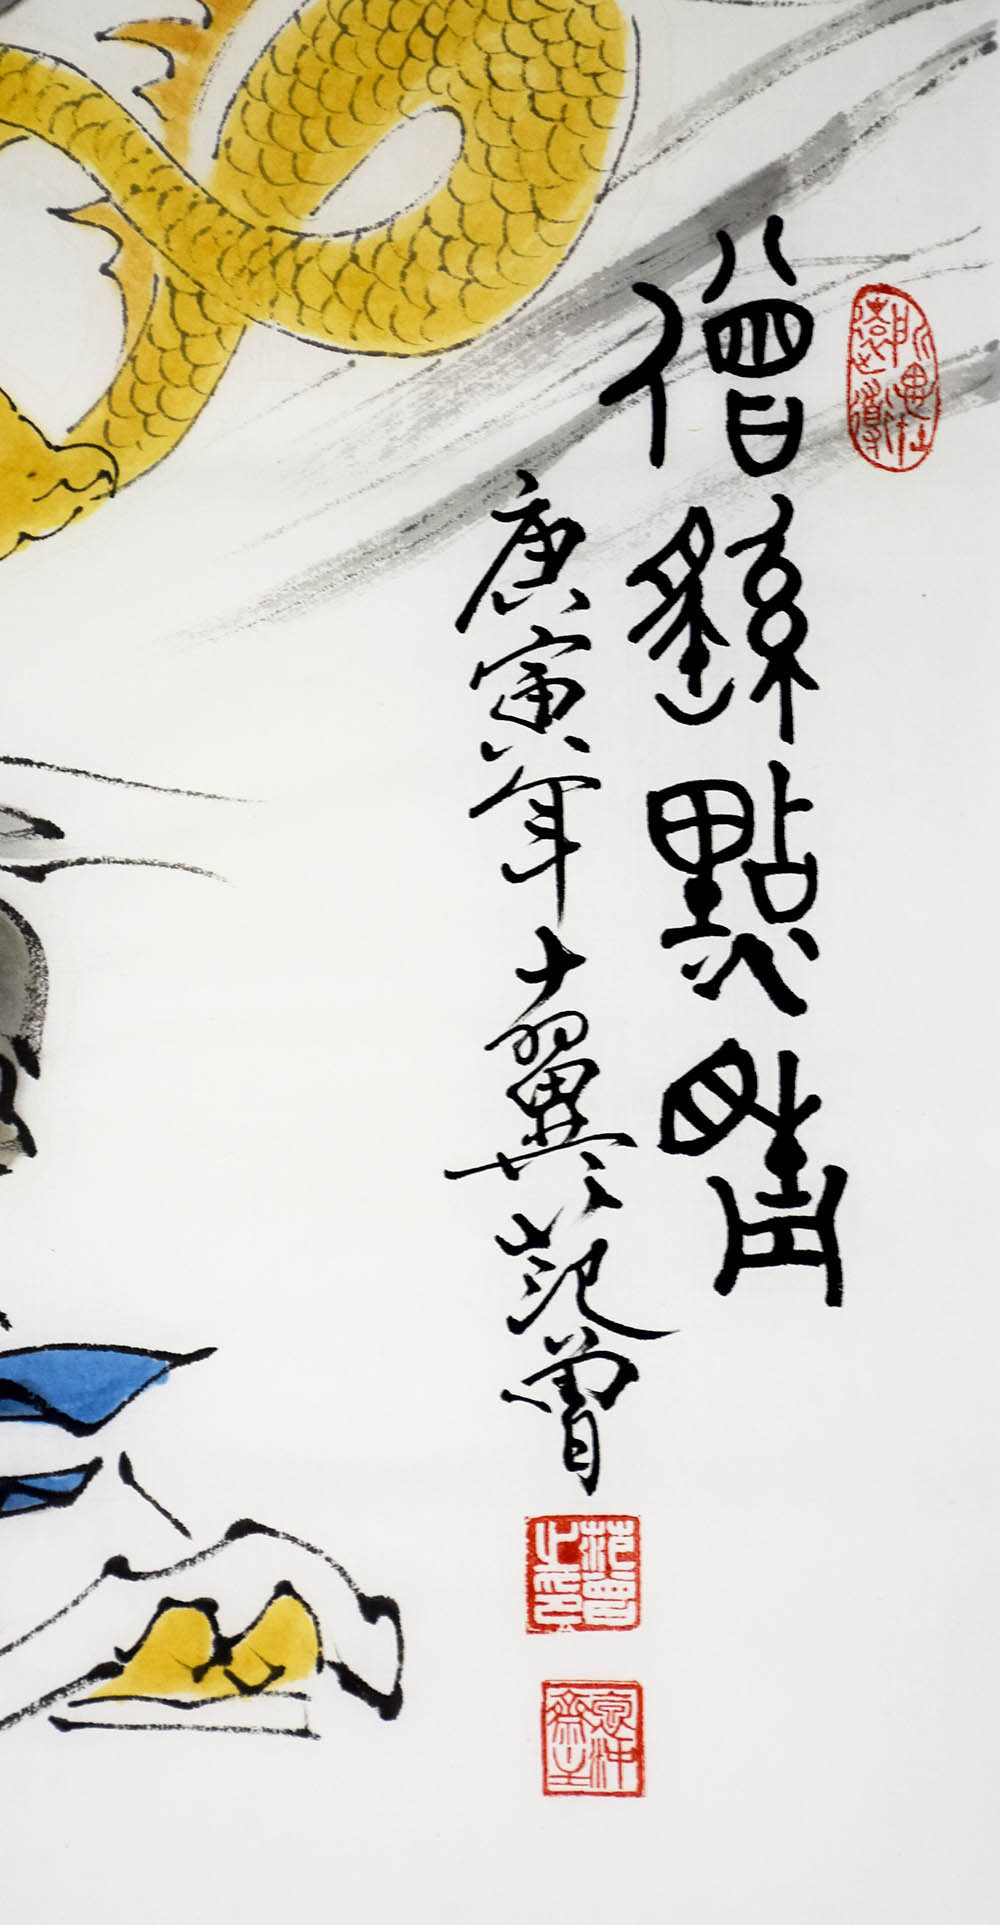 僧繇點睛
庚寅年十翼范曾
范曾之印